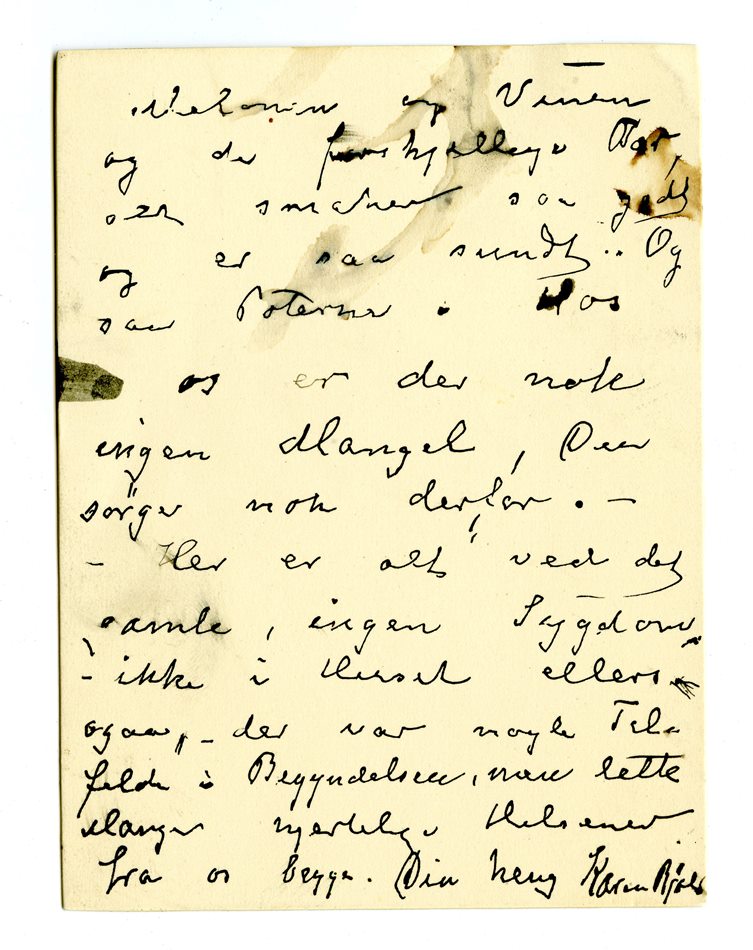 og Vinen
og de forskjellige
smaker saa godt
og er saa sundt.. Og
saa Poterne. Hos
os er der nok
ingen Mangel, Du
sörger nok derfor. –
– Her er alt ved det
samle, ingen Sygdom
– ikke i Huset ellers
ogaa, – der var nogle Til-
felde i Begyndelsen, men lette
Mange hjertelige Helsener
fra os begge. Din heng Karen